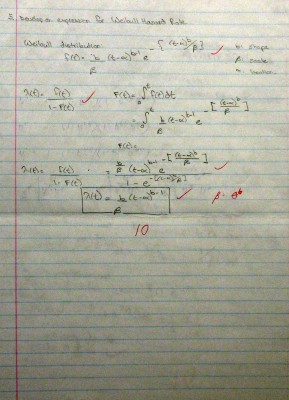 3. Develop expression for Weibull Hazard Rate
Weibull distribution:
f(t) = b/β (t-α)^(b-1) e^-[(t-α)^b/β]
b: shape
β: scale
α: location
λ(t) = f(t)/(1-F(t))
F(t) = ∫₀ᵗ f(t)dt
= ∫₀ᵗ b/β (t-α)^(b-1) e^-[(t-α)^b/β]
F(t) =
λ(t) = f(t)/(1-F(t)) = b/β (t-α)^(b-1) e^-[(t-α)^b/β] / 1-e^-[(t-α)^b/β]
λ(t) = b/β (t-α)^(b-1)
β = θ^b
10